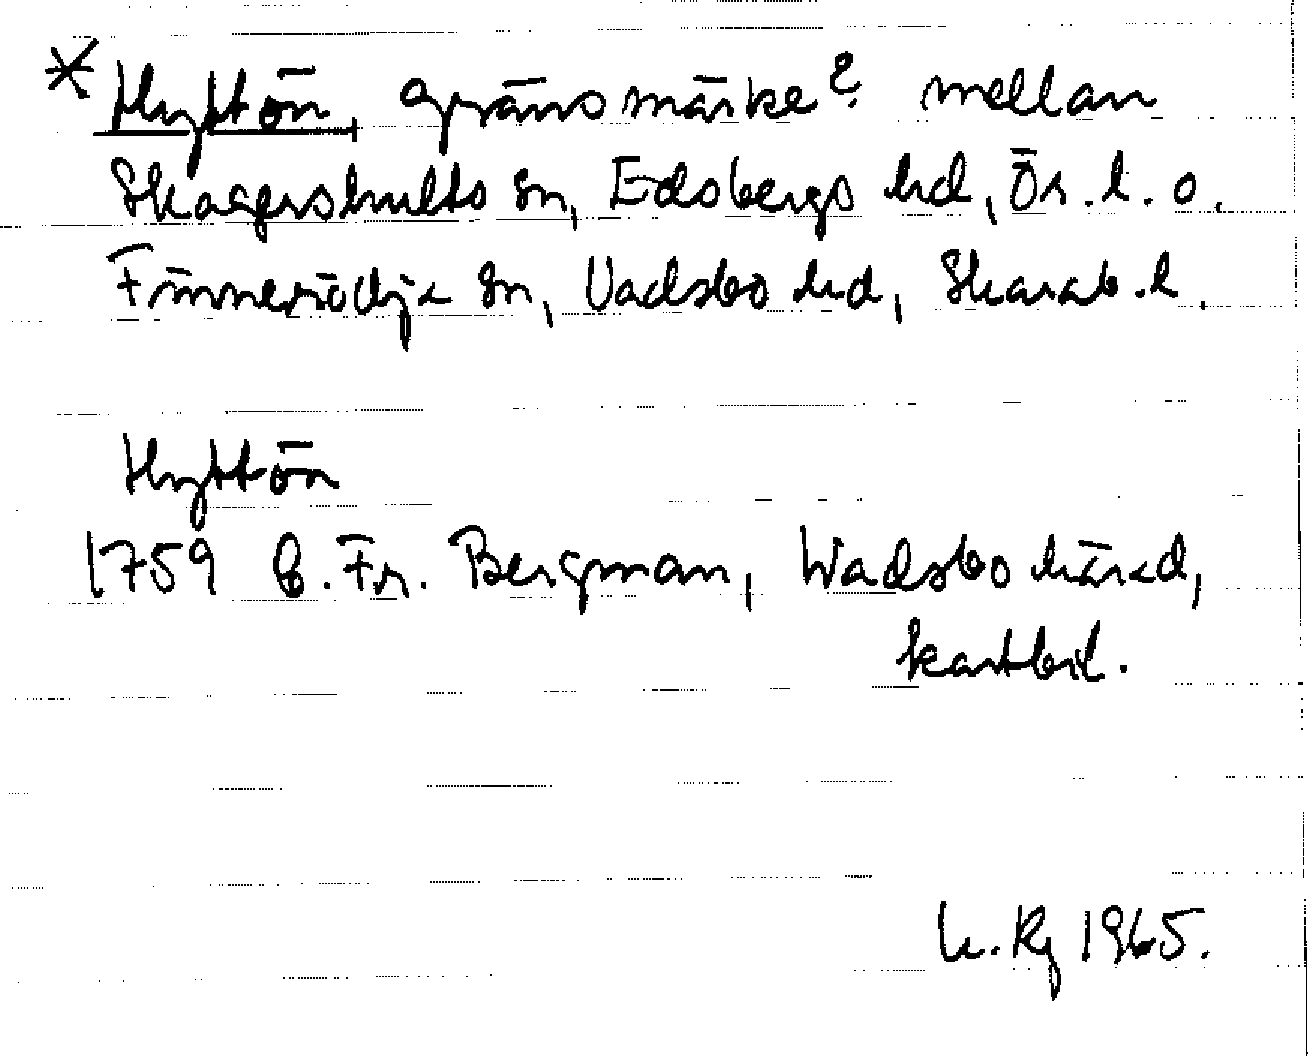 * Hyttön, gränsmärke? mellan
Skagershults sn, Edsbergs hd, Ör. l. o.
Finnerödja sn, Vadsbo hd, Skarab. l.
Hyttön
1759 B. Fr. Bergman, Wadsbo härad,
kartbil.
Rz 1965.